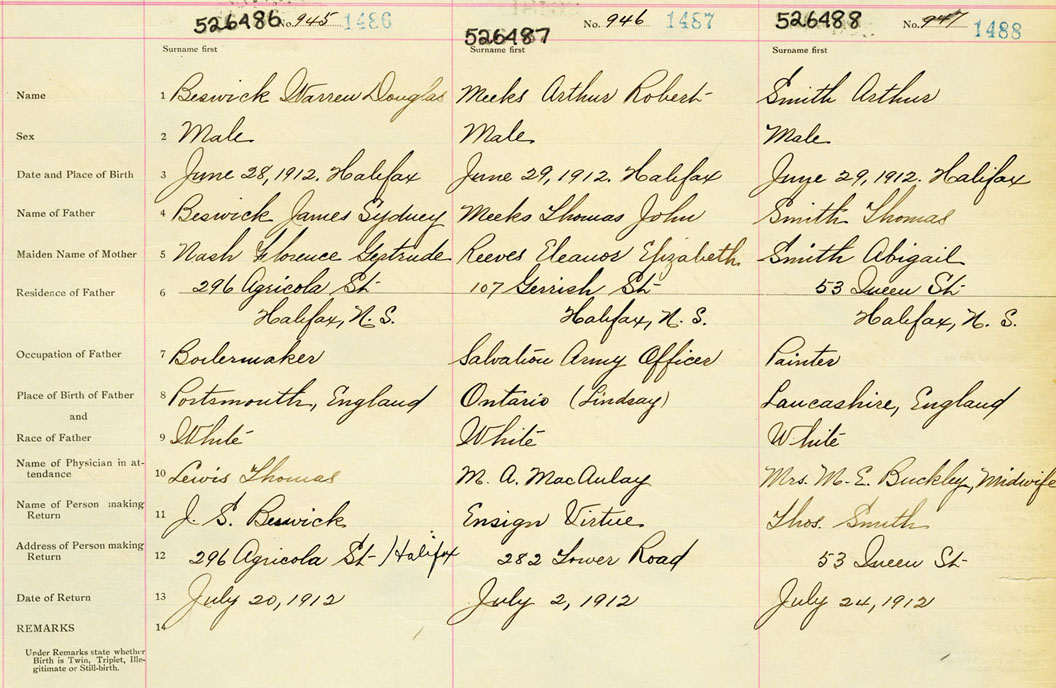 526486 No. 945 1486 No. 946 1487 526488 No. 947 1488
526487
Surname first Surname first Surname first
Name 1 Beswick Warren Douglas Meeks Arthur Robert Smith Arthur
Sex 2 Male Male Male
Date and Place of Birth 3 June 28, 1912, Halifax June 29, 1912. Halifax June 29, 1912. Halifax
Name of Father 4 Beswick James Sydney Meeks Thomas John Smith Thomas
Maiden Name of Mother 5 Nash Florence Gertrude Reeves Eleanor Elizabeth Smith Abigail
Residence of Father 6 296 Agricola St 107 Gerrish St 53 Queen St
Halifax, N. S. Halifax, N. S. Halifax, N. S.
Occupation of Father 7 Boilermaker Salvation Army Officer Painter
Place of Birth of Father 8 Portsmouth, England Ontario (Lindsay) Lancashire, England
and
Race of Father 9 White White White
Name of Physician in at-
tendance 10 Lewis Thomas M. A. MacAulay Mrs. M. E. Buckley, Midwife
Name of Person making
Return 11 J. S. Beswick Ensign Virtue Thos. Smith
Address of Person making
Return 12 296 Agricola St Halifax 282 Tower Road 53 Queen St
Date of Return 13 July 20, 1912 July 2, 1912 July 24, 1912
REMARKS 14
Under Remarks state whether
Birth is Twin, Triplet, Ille-
gitimate or Still-birth.